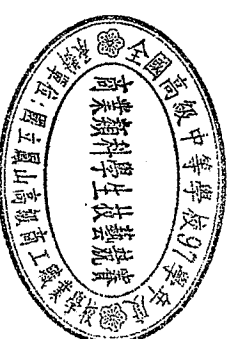 全國高級中等學校97學年度
商業類科學生技藝競賽
承辦單位：國立鳳山高級商工職業學校